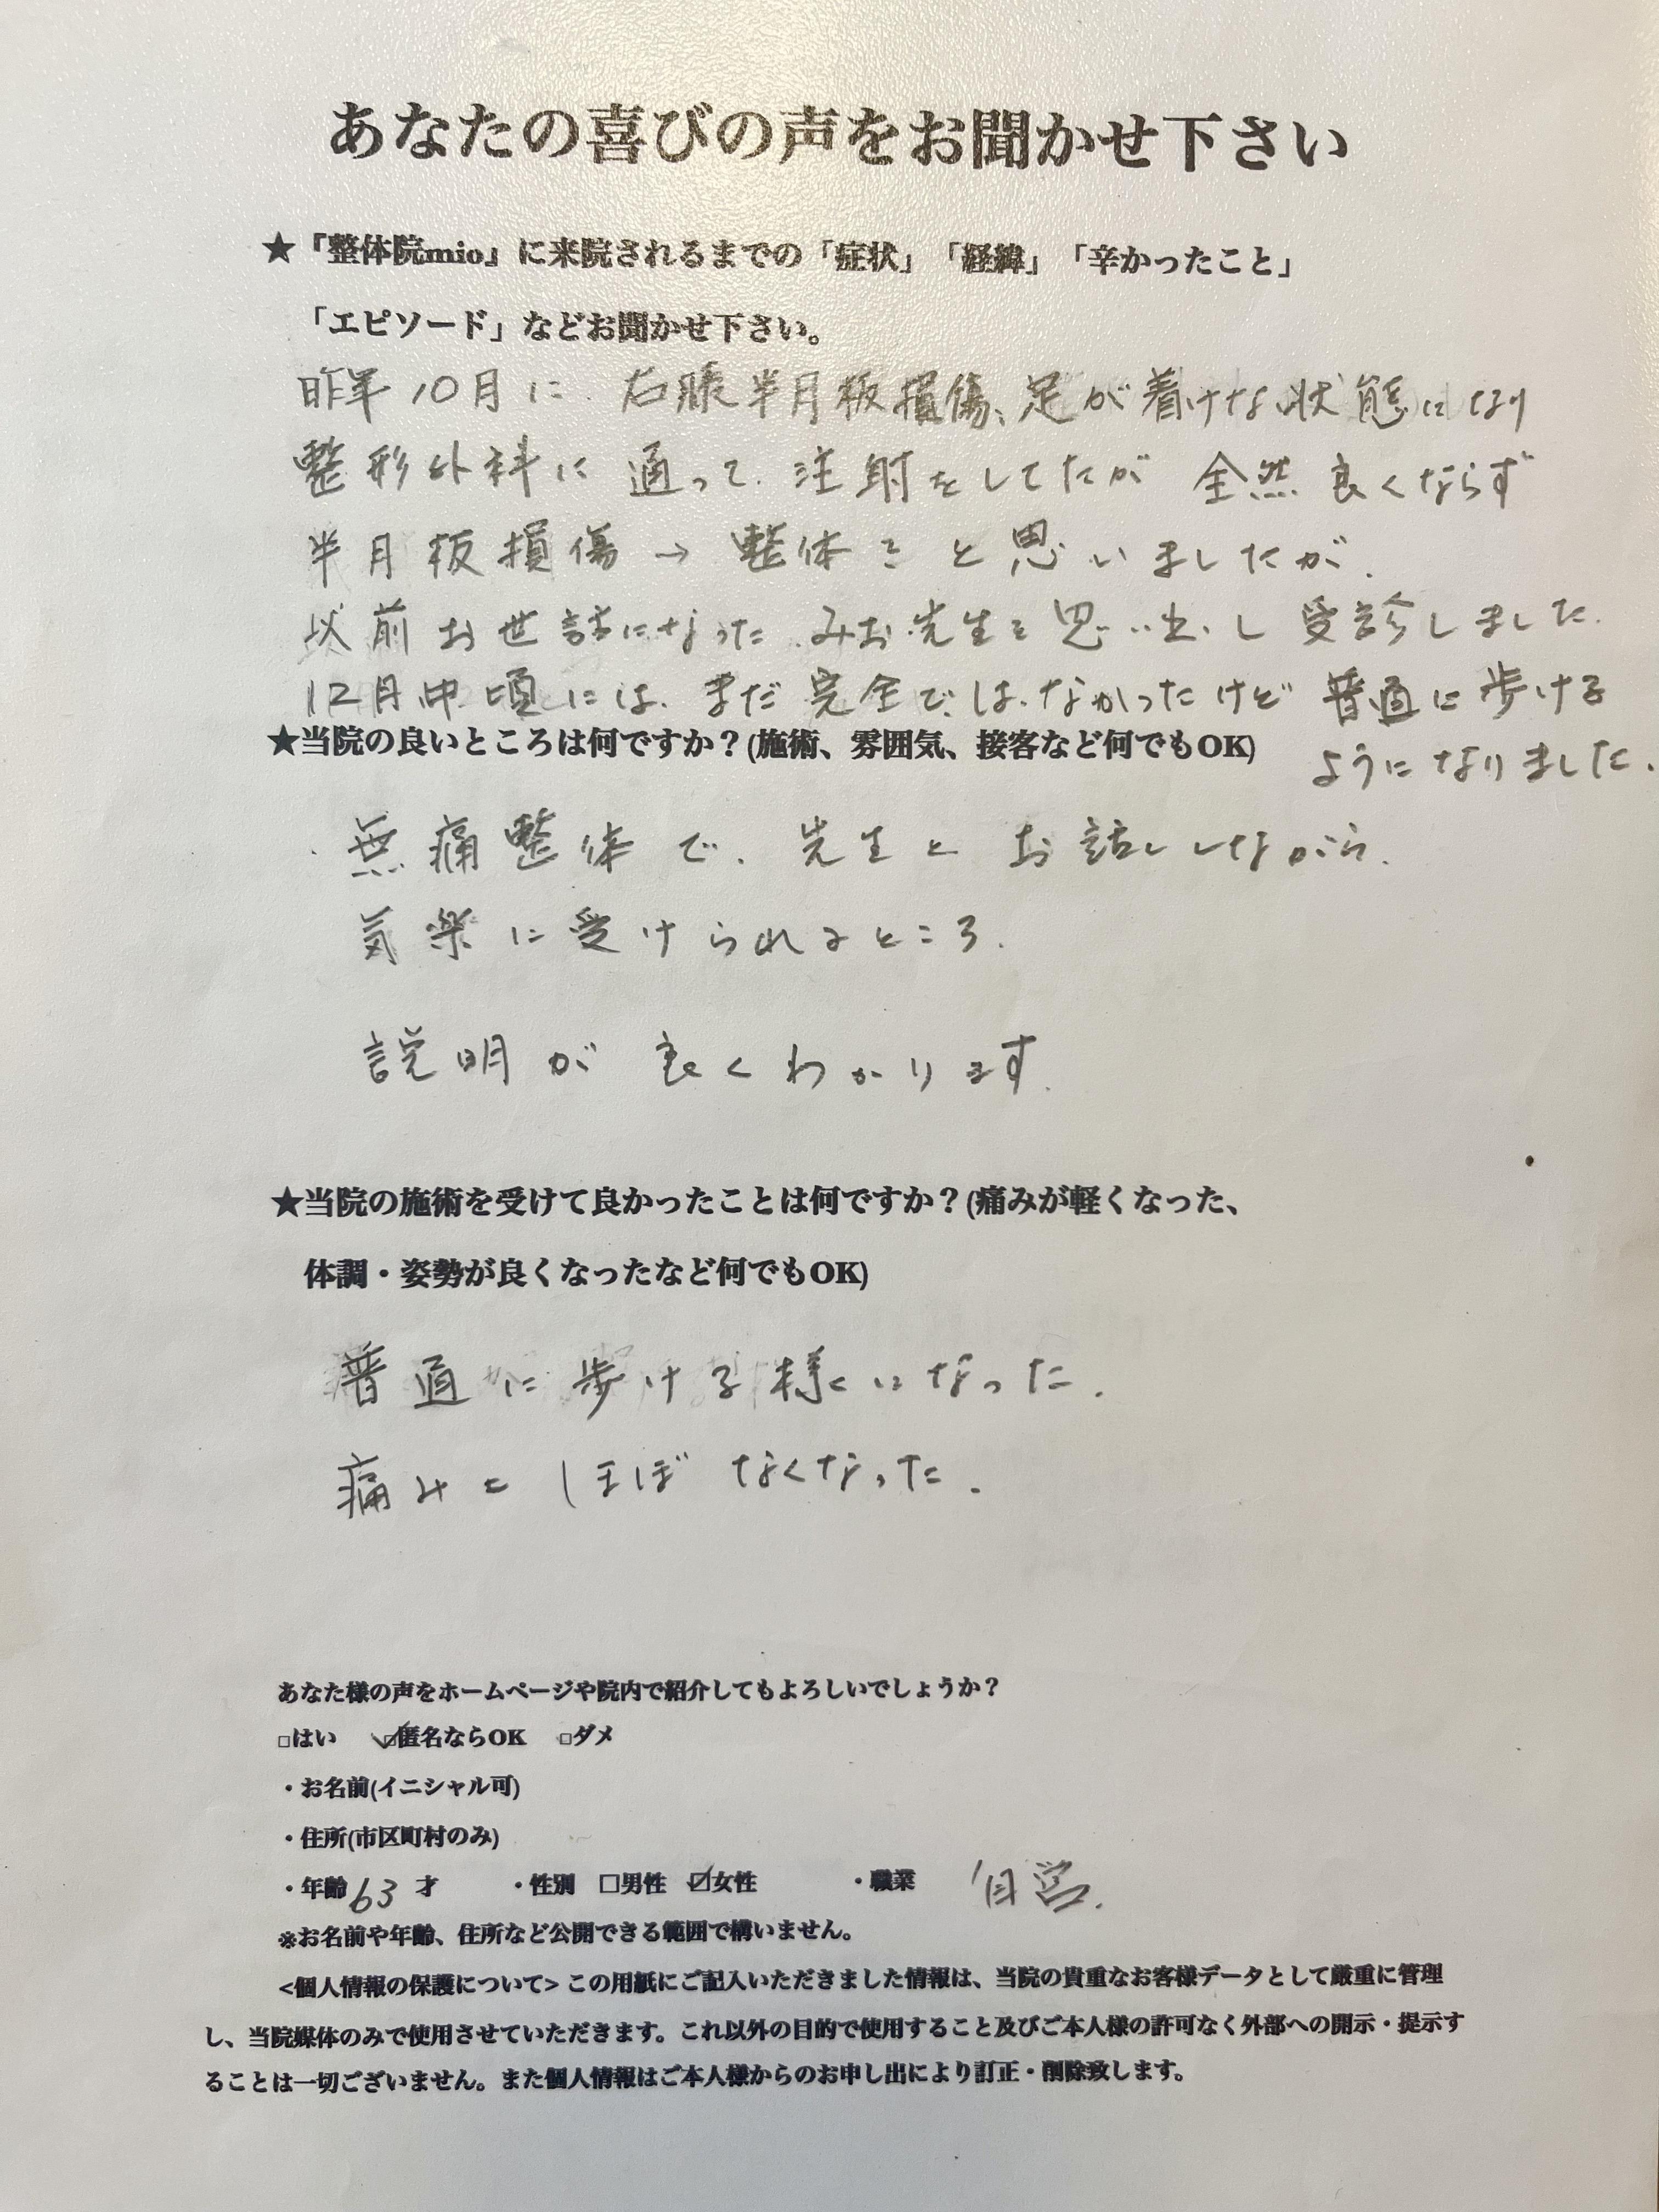 あなたの喜びの声をお聞かせ下さい
★『整体院mio』に来院されるまでの「症状」「経緯」「辛かったこと」
「エピソード」などお聞かせ下さい。
昨年10月に、右膝半月板損傷、足が着けない状態になり
整形外科に通って、注射をしてたが全然良くならず
半月板損傷→整体?と思いましたが、
以前お世話になった、みお先生を思い出し受診しました。
12月中頃には、まだ完全ではなかったけど普通に歩ける
ようになりました。
★当院の良いところは何ですか？(施術、雰囲気、接客など何でもOK)
・無痛整体で、先生とお話ししながら、
気楽に受けられるところ.
説明が良くわかります.
★当院の施術を受けて良かったことは何ですか？(痛みが軽くなった、
体調・姿勢が良くなったなど何でもOK)
普通に歩ける様になった.
痛みも ほぼなくなった.
あなた様の声をホームページや院内で紹介してもよろしいでしょうか？
□はい ☑匿名ならOK □ダメ
・お名前(イニシャル可)
・住所(市区町村のみ)
・年齢 63 才 ・性別 □男性 ☑女性 ・職業 自営.
※お名前や年齢、住所など公開できる範囲で構いません。
<個人情報の保護について> この用紙にご記入いただきました情報は、当院の貴重なお客様データとして厳重に管理
し、当院媒体のみで使用させていただきます。これ以外の目的で使用すること及びご本人様の許可なく外部への開示・提示す
ることは一切ございません。また個人情報はご本人様からのお申し出により訂正・削除致します。